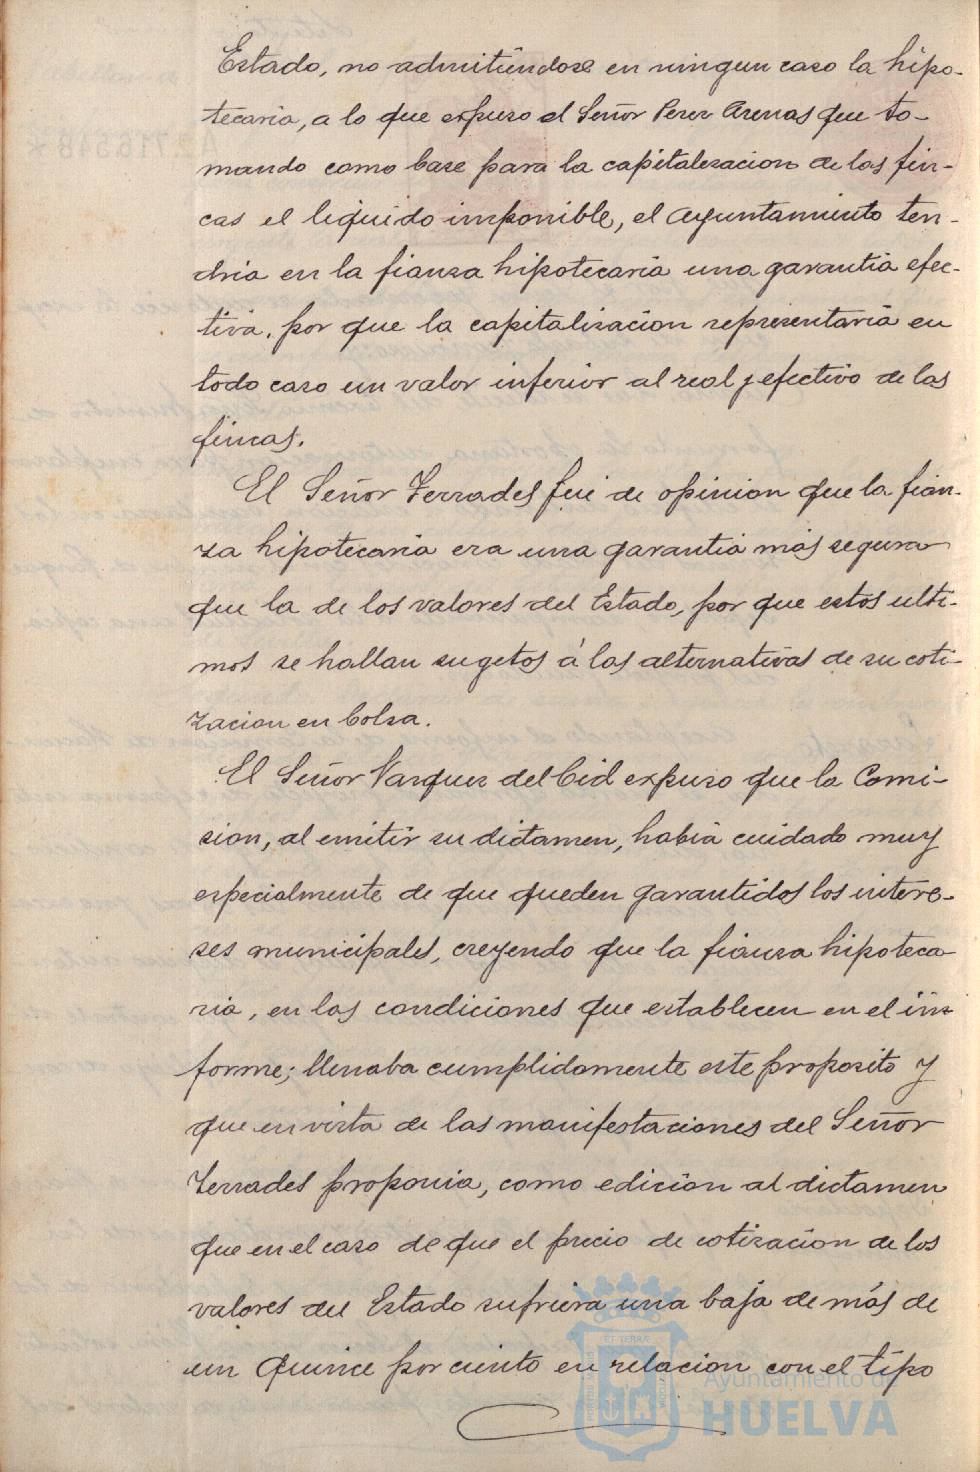 Estado, no admitiéndose en ningun caso la hipo-
tecaria, a lo que expuso el Señor Perez Arenas que to-
mando como base para la capitalizacion de las fin-
cas el liquido imponible, el Ayuntamiento ten-
dria en la fianza hipotecaria una garantia efec-
tiva, por que la capitalización representaria en
todo caso un valor inferior al real y efectivo de las
fincas.
El Señor Terrades fué de opinion que la fian-
za hipotecaria era una garantia más segura
que la de los valores del Estado, por que estos ulti-
mos se hallan sugetos á las alternativas de su coti-
zacion en bolsa.
El Señor Vazquez del Cid expuso que la Comi-
sion, al emitir su dictamen, habia cuidado muy
especialmente de que queden garantidos los intere-
ses municipales, creyendo que la fianza hipoteca-
ria, en las condiciones que establecen en el in-
forme; llenaba cumplidamente este proposito y
que en vista de las manifestaciones del Señor
Terrades proponia, como edición al dictamen
que en el caso de que el precio de cotización de los
valores del Estado sufriera una baja de más de
un quince por ciento en relacion con el tipo
Ayuntamiento de
HUELVA